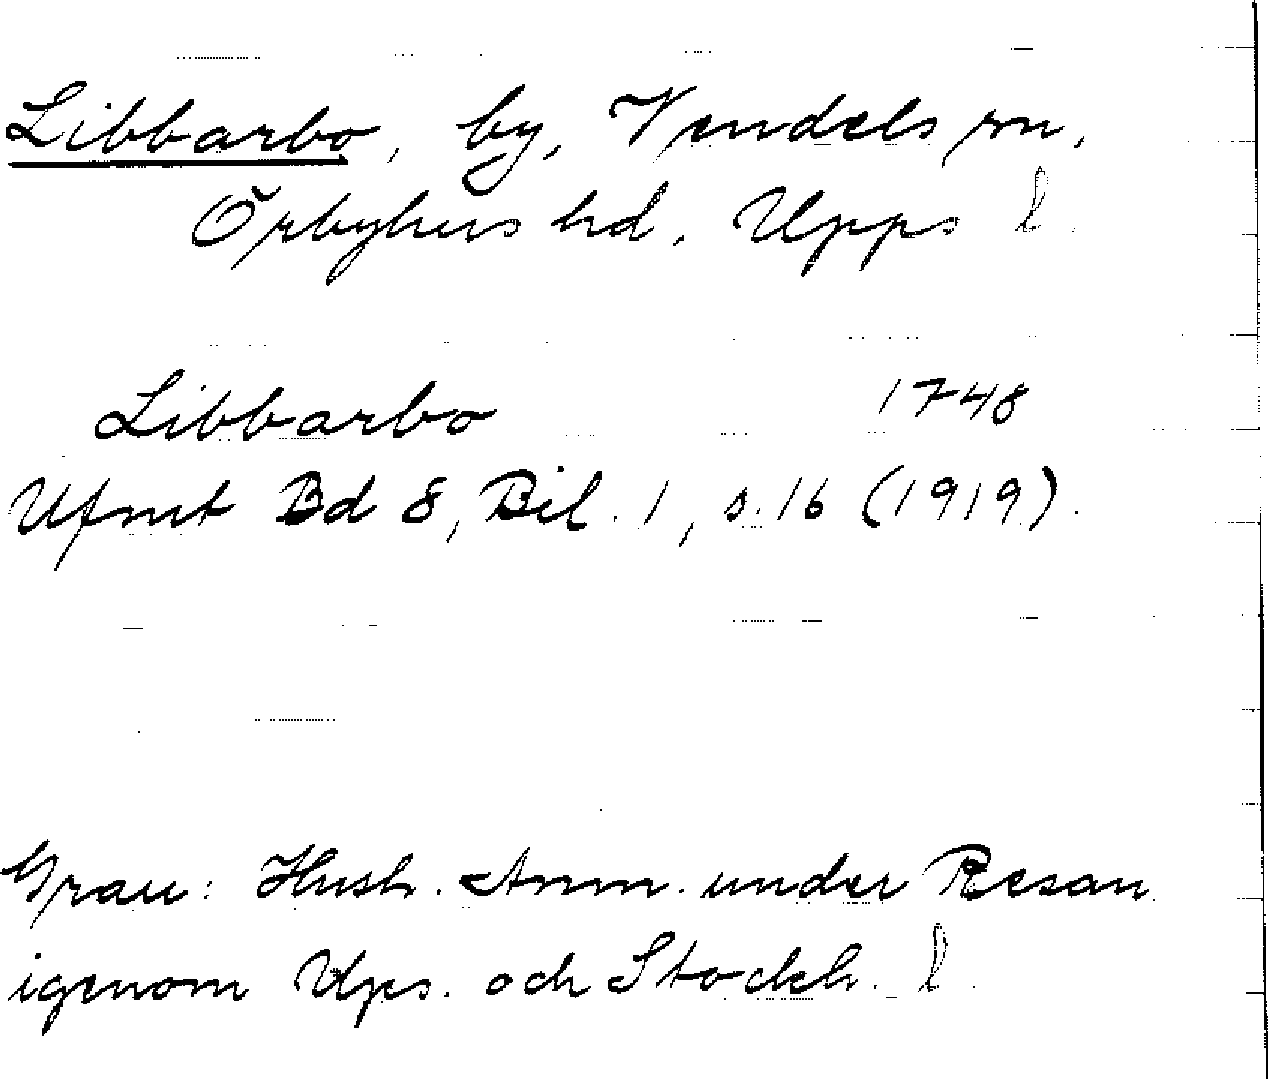 Libbarbo, by, Vendels sn,
Örbyhus hd, Upps l.
Libbarbo 1748
Ufmt Bd 8, Bil. 1, s. 16 (1919).
Grau: Hush. Anm. under Resan
igenom Ups. och Stockh. l.